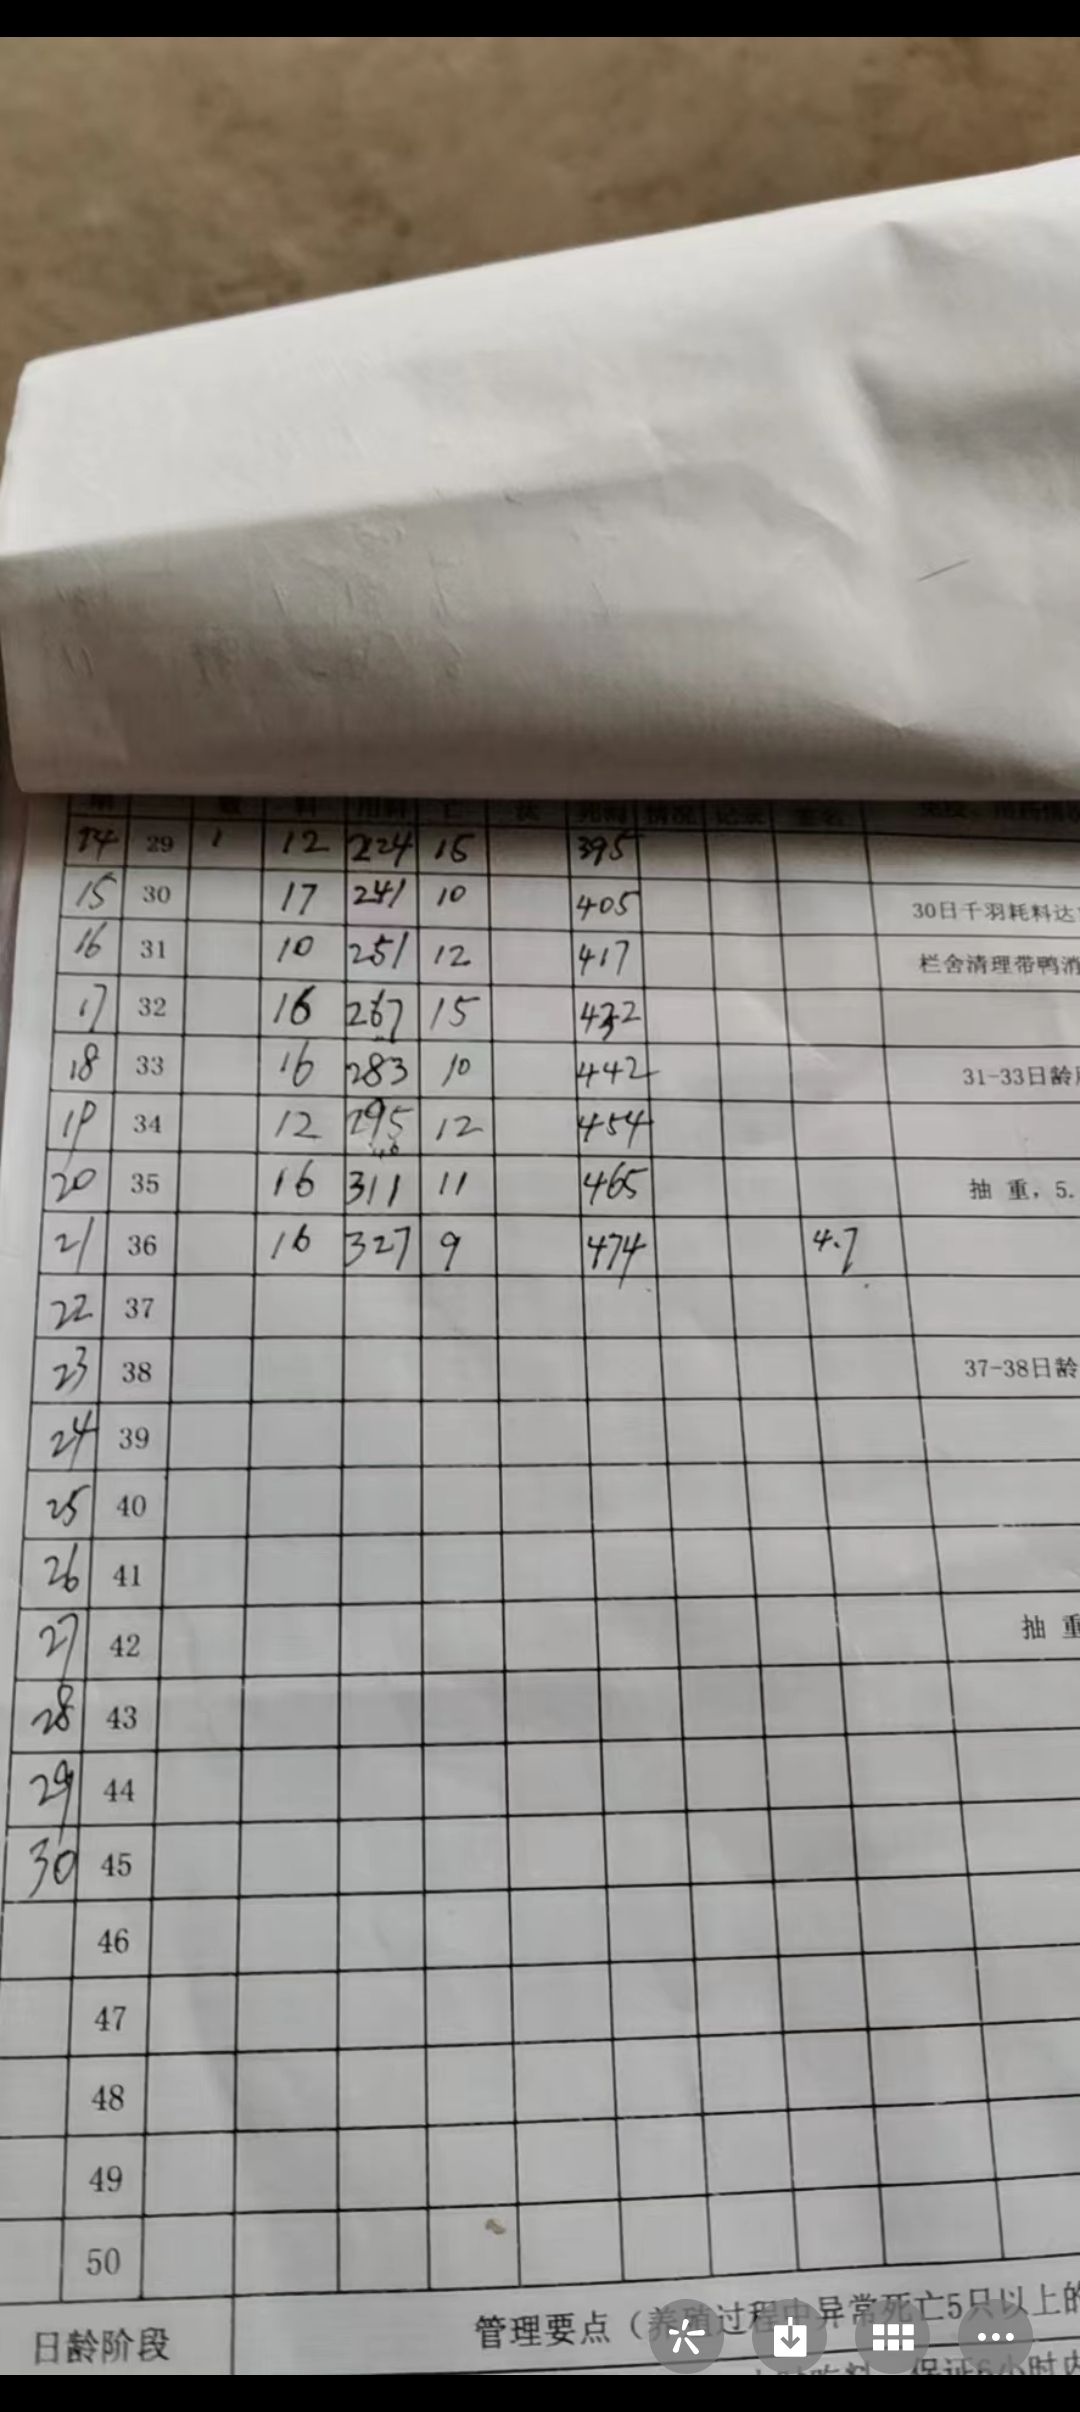 14 29 1 12 224 15 395
15 30 17 241 10 405 30日千羽耗料达
16 31 10 251 12 417 栏舍清理带鸭消
17 32 16 267 15 432
18 33 16 283 10 442 31-33日龄
19 34 12 295 12 454
20 35 16 311 11 465 抽 重，5.
21 36 16 327 9 474 4.7
22 37
23 38 37-38日龄
24 39
25 40
26 41
27 42 抽 重
28 43
29 44
30 45
46
47
48
49
50
日龄阶段 管理要点（养殖过程中异常死亡5只以上的
保证6小时内